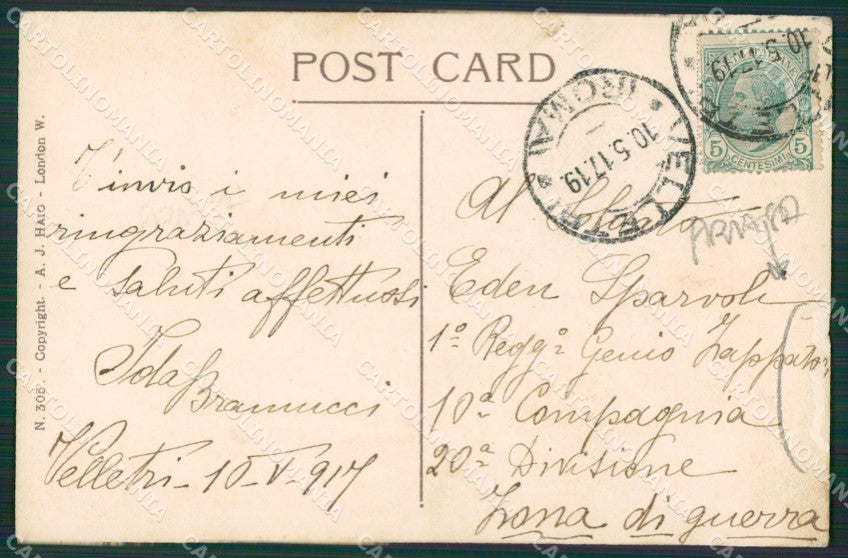 POST CARD
N. 305. - Copyright. - A. J. HAIG - London W.
V'invio i miei
ringraziamenti
e saluti affettuosi
Ida Bramucci
Velletri - 10 - V - 917
VELLETRI
(ROMA)
10.5.17.19
10.5.17.19
5 CENTESIMI 5
Al Soldato
Eden Sparvoli
1º Regg.º Genio Zappatori
10ª Compagnia
20ª Divisione
Zona di guerra
CARTOLINOMANIA